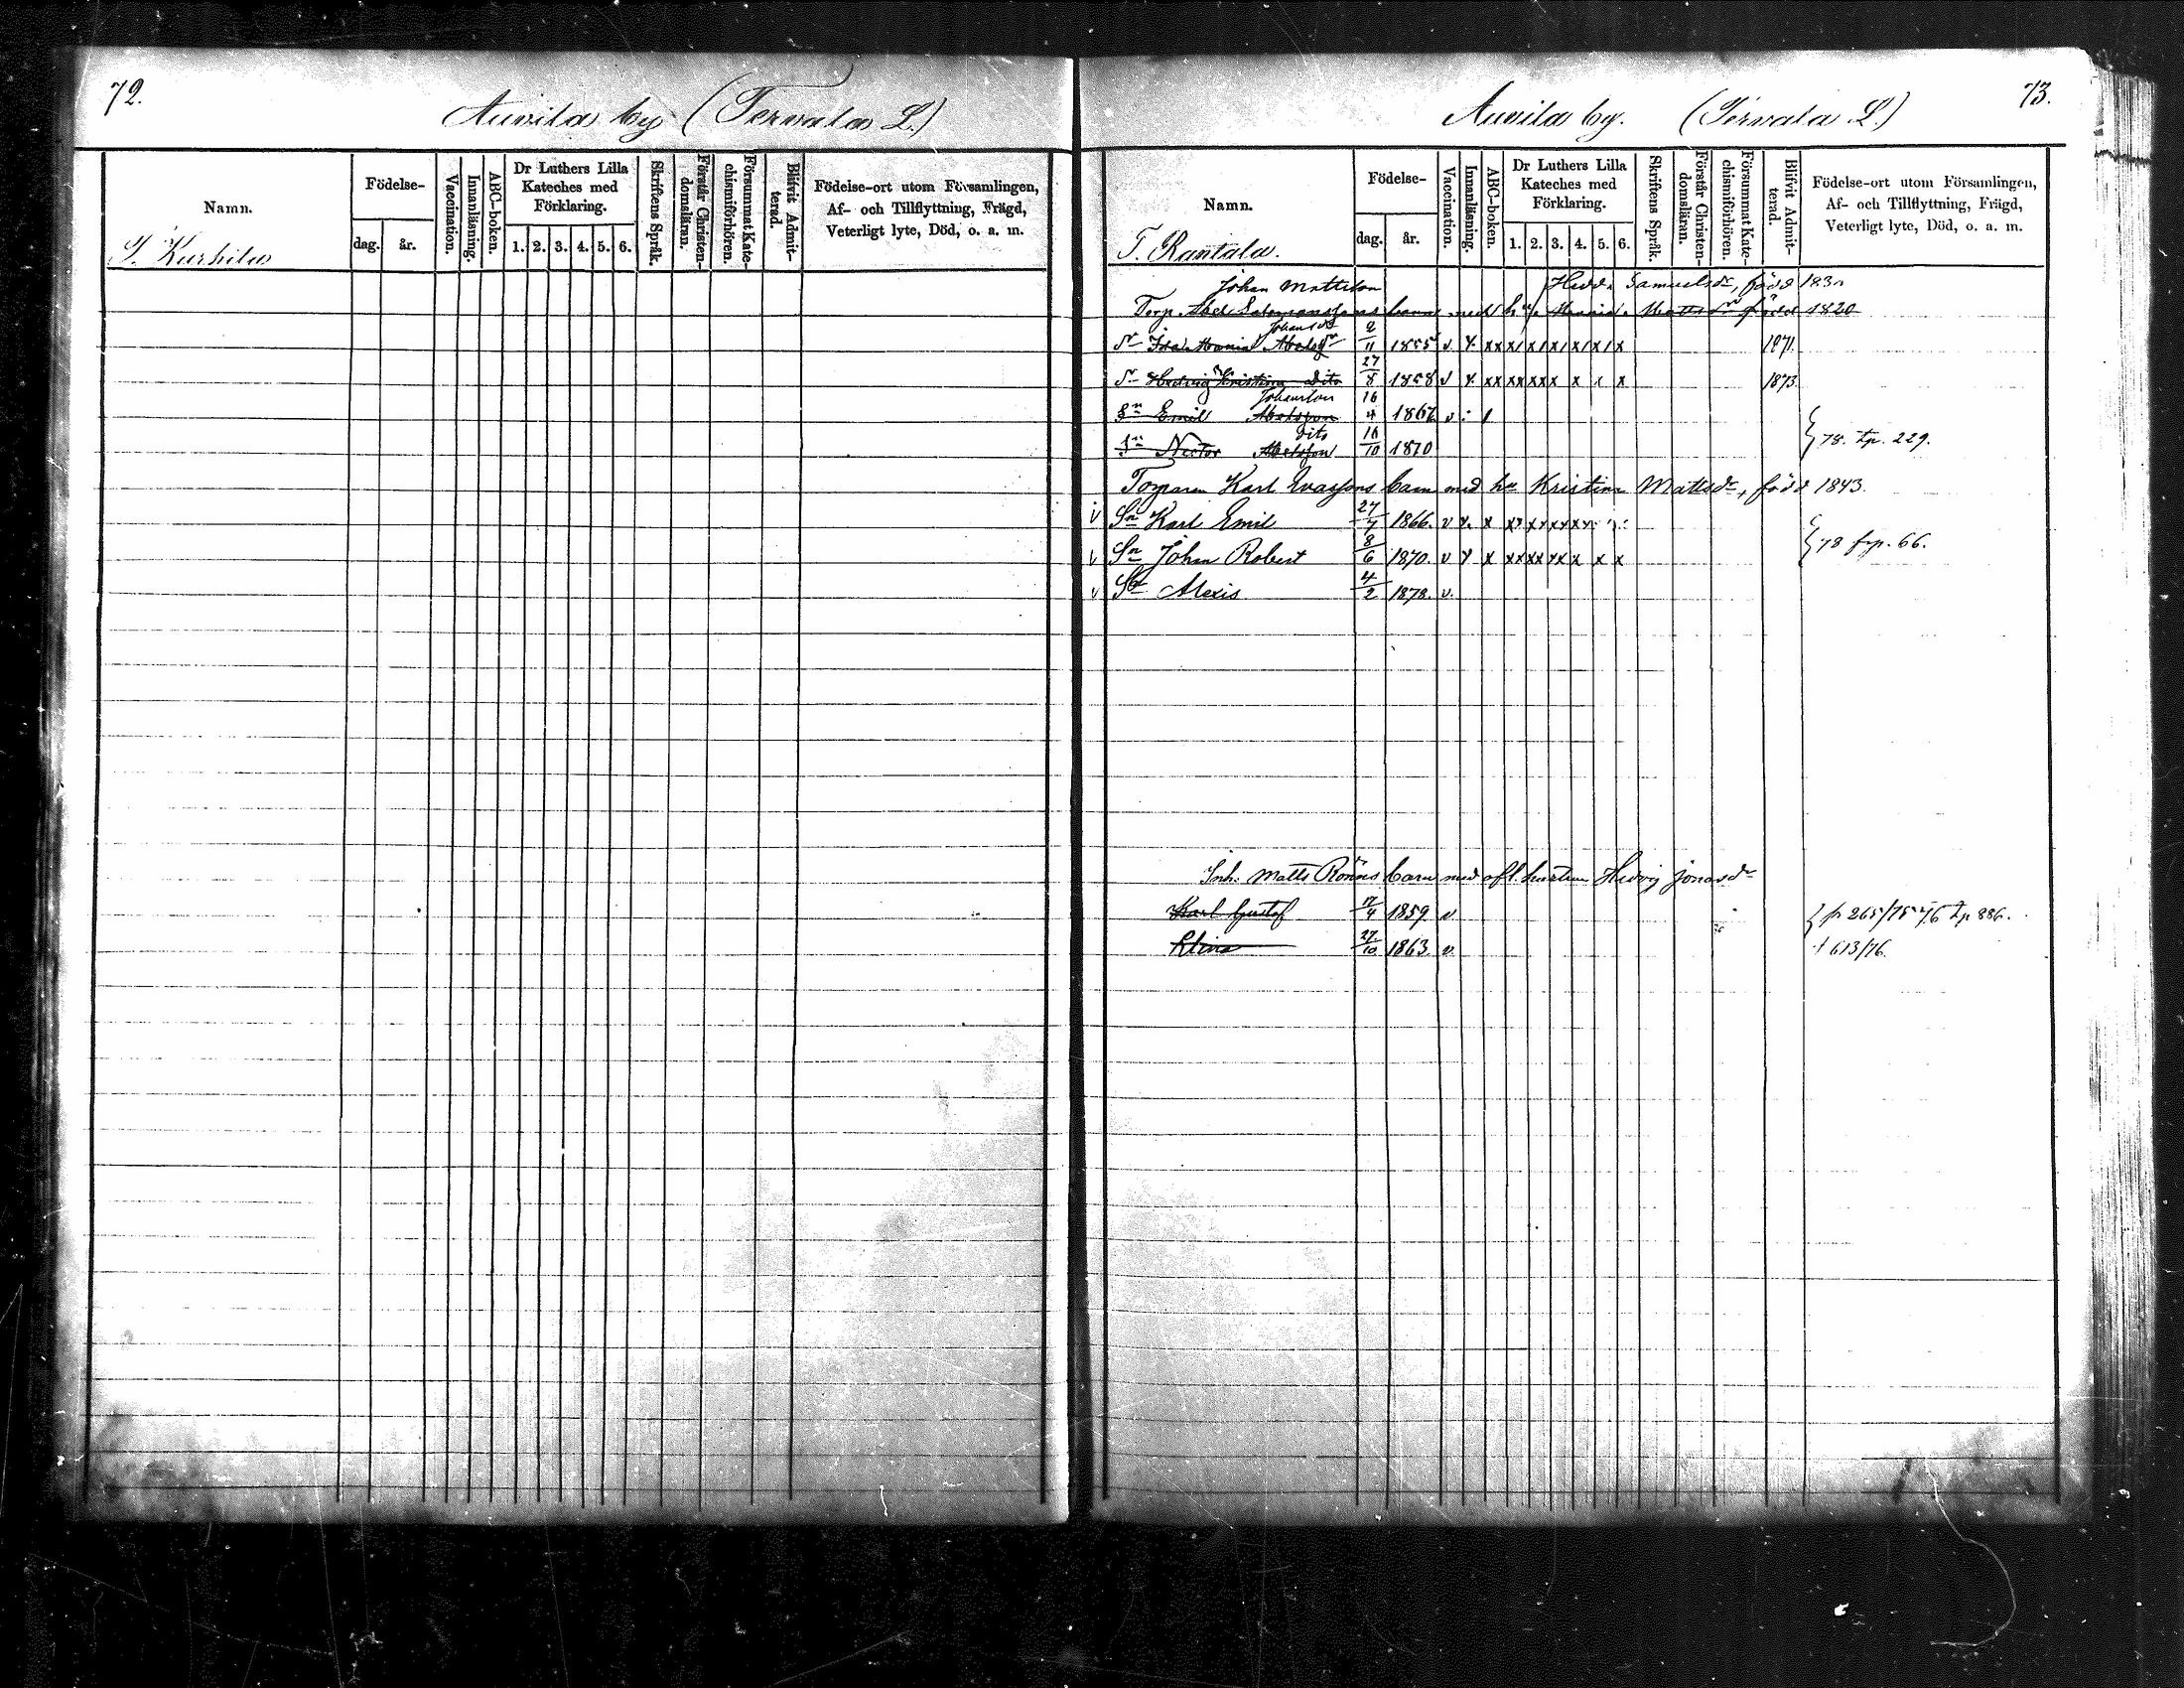 72.
Auvila by (Tervala L.)
Namn.
Födelse-
dag.
år.
Vaccination.
Innanläsning.
ABC-boken.
Dr Luthers Lilla
Kateches med
Förklaring.
1. 2. 3. 4. 5. 6.
Skriftens Språk.
Förstår Christen-
domsläran.
Försummat Kate-
chismiförhören.
Blifvit Admit-
terad.
Födelse-ort utom Församlingen,
Af- och Tillflyttning, Frägd,
Veterligt lyte, Död, o. a. m.
T. Kurhila
73.
Auvila by. (Tervala L.)
Namn.
Födelse-
dag.
år.
Vaccination.
Innanläsning.
ABC-boken.
Dr Luthers Lilla
Kateches med
Förklaring.
1. 2. 3. 4. 5. 6.
Skriftens Språk.
Förstår Christen-
domsläran.
Försummat Kate-
chismiförhören.
Blifvit Admit-
terad.
Födelse-ort utom Församlingen,
Af- och Tillflyttning, Frägd,
Veterligt lyte, Död, o. a. m.
T. Rantala.
Johan Mattsson Samuelsdr, född 183
Torp. Abel Salomonssons barn med hu Mattsdr född 1820
Johansdr
dr Ida Maria Abelsdr 2/11 1855 v x xx x/ x/ x/ x/ x/ x 1871.
dr Hedvig Kristina dito 27/8 1858 v x xx xx xx x x x 1873.
Johansson
Sn Emil Abelsson 16/4 1867 v : /
dito
Sn Nestor Abelsson 16/10 1870 } 78. tp. 229.
Torparen Karl Evassons barn med hu Kristina Mattsdr, född 1843.
v Sn Karl Emil 27/7 1866. v x. x xx xxxxxx
v Sn Johan Robert 8/6 1870. v x x xx xx xx x x x } 78 frp. 66.
v Sn Alexis 4/2 1878. v.
Inh. Matts Röniis barn med afl. hustrun Hedvig Jonasdr
Karl Gustaf 17/4 1859. v } fr 265/75 76 tp 886.
Elina 27/10 1863 v. † 613/76.